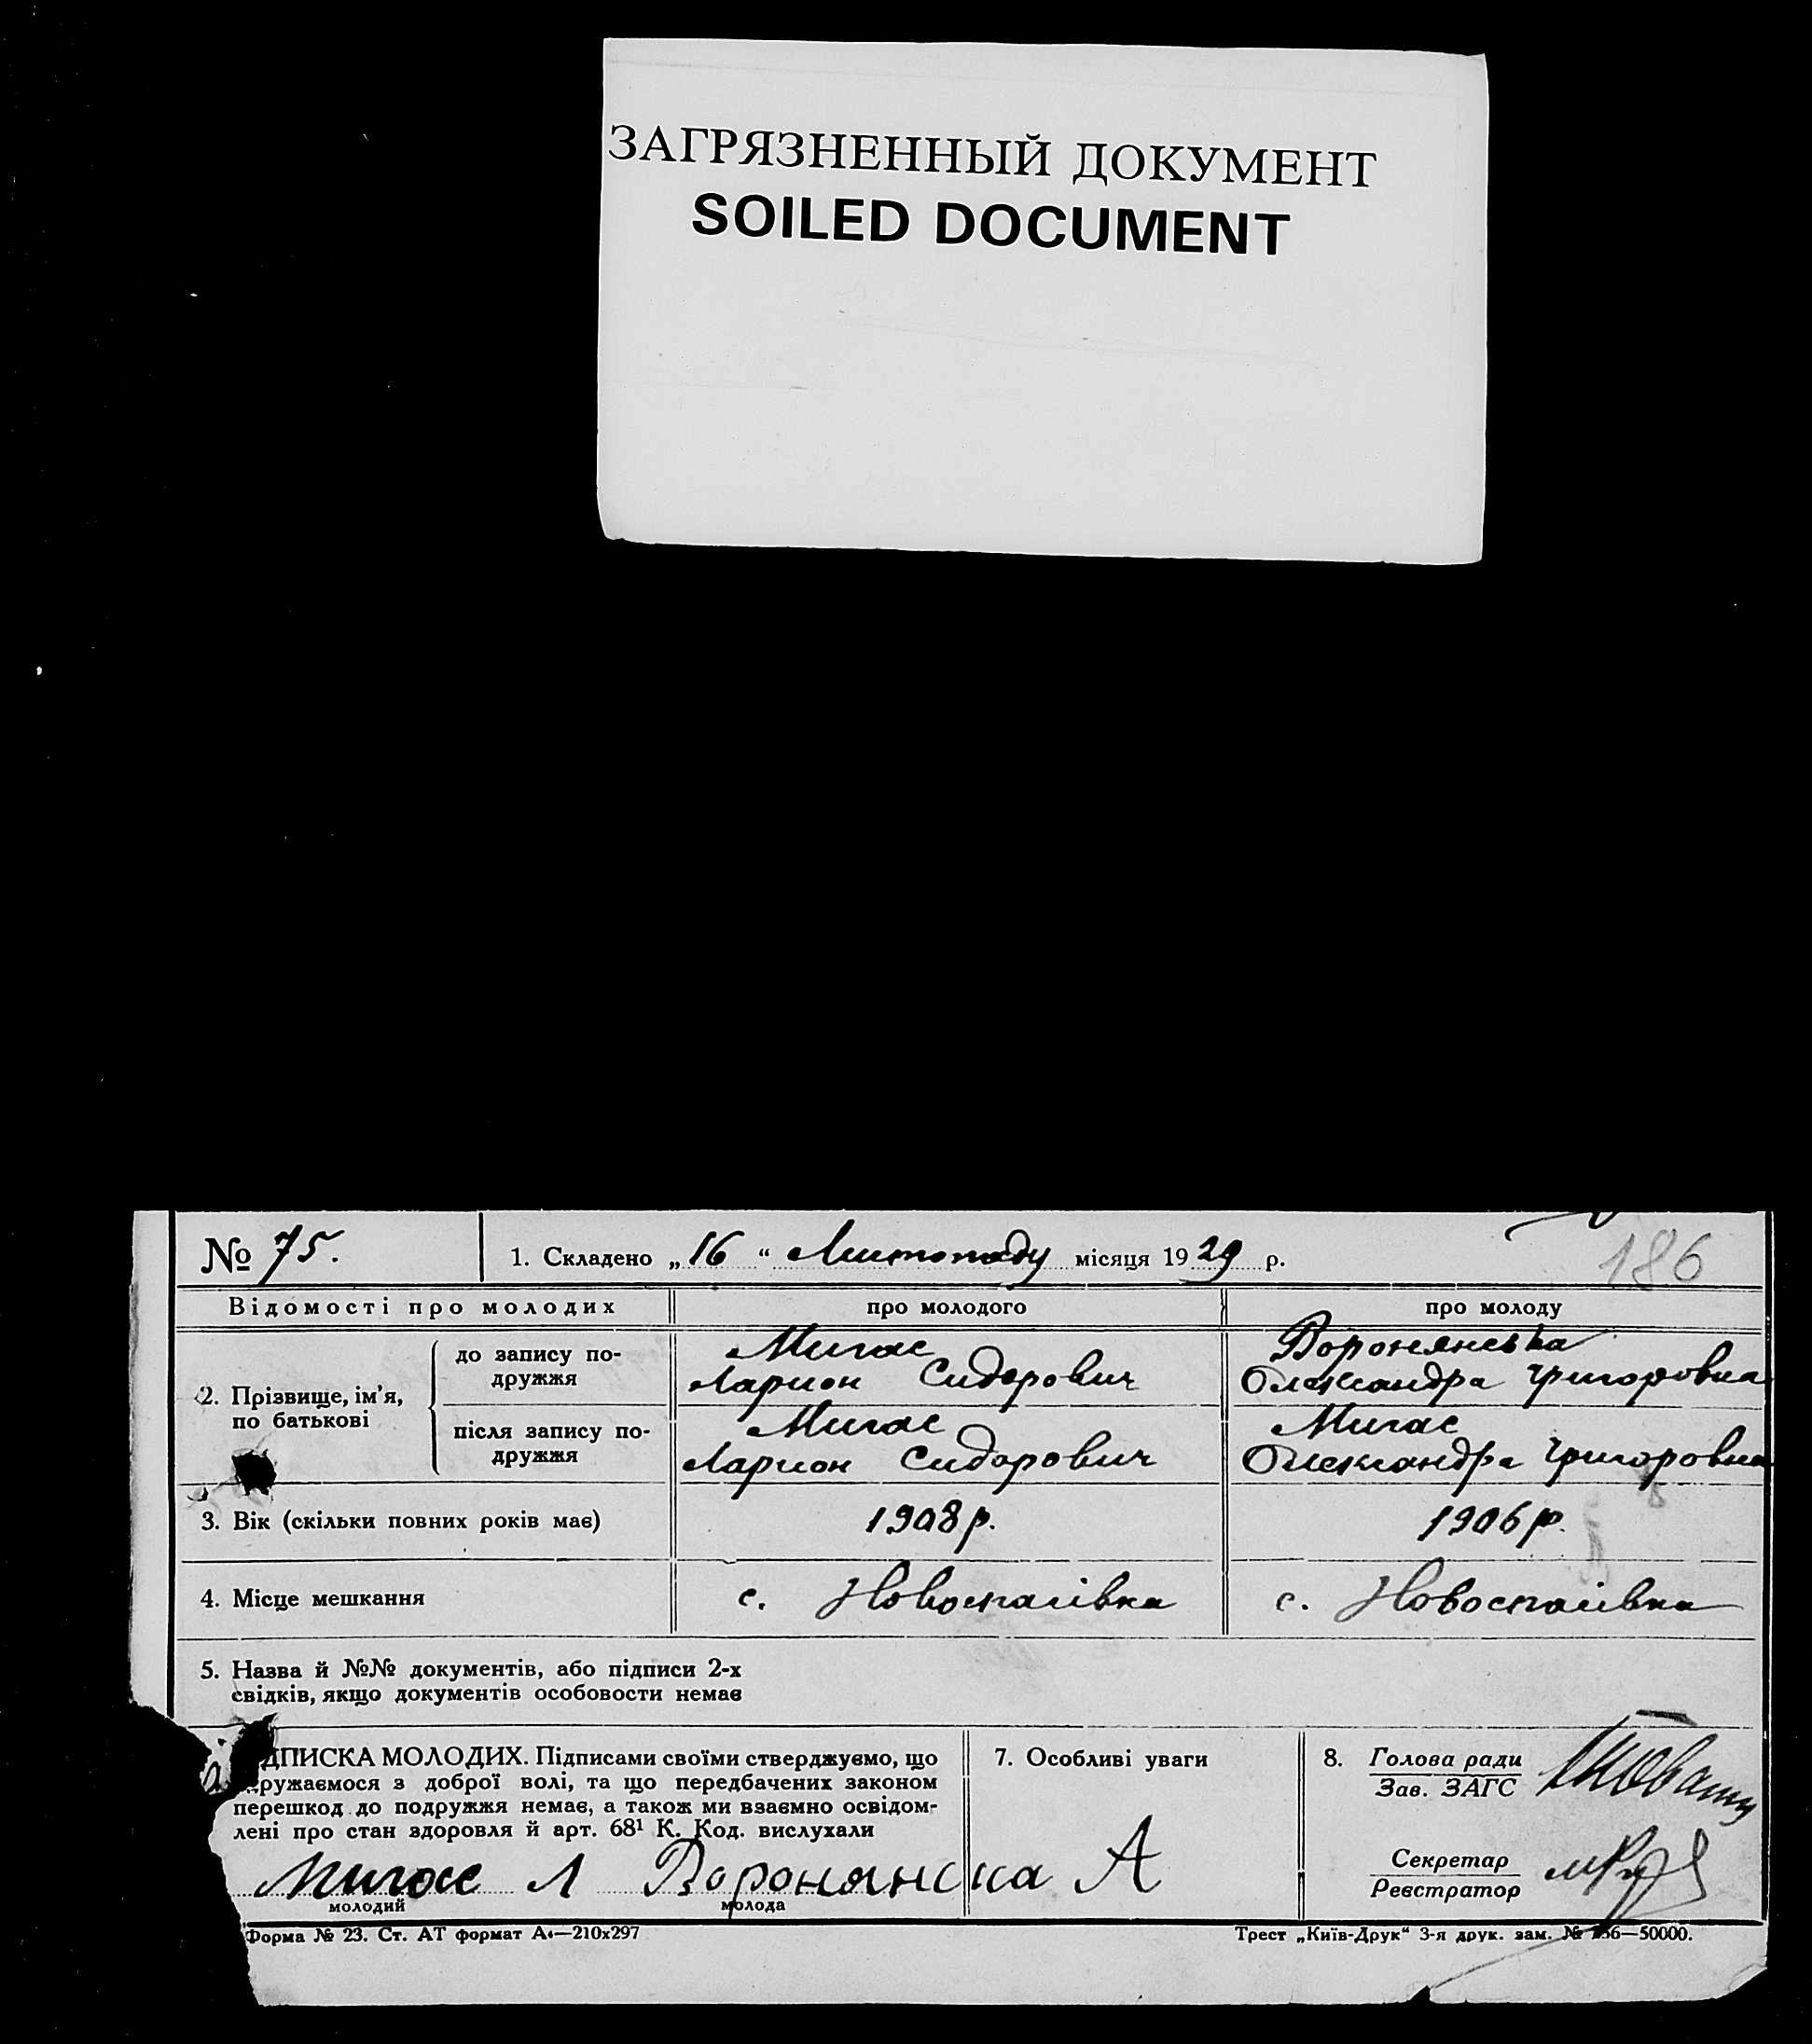 ЗАГРЯЗНЕННЫЙ ДОКУМЕНТ
SOILED DOCUMENT
№ 75.
1. Складено „16“ Листопаду місяця 1929 р.
186
Відомості про молодих
про молодого
про молоду
2. Прізвище, ім'я,
по батькові
до запису по-
дружжя
Мигас
Ларион Сидорович
Воронянська
Олександра Григоровна
після запису по-
дружжя
Мигас
Ларион Сидорович
Мигас
Олександра Григоровна
3. Вік (скільки повних років має)
1908 р.
1906 р.
4. Місце мешкання
с. Новоспасівка
с. Новоспасівка
5. Назва й №№ документів, або підписи 2-х
свідків, якщо документів особовости немає
ДПИСКА МОЛОДИХ. Підписами своїми стверджуємо, що
дружаємося з доброї волі, та що передбачених законом
перешкод до подружжя немає, а також ми взаємно освідом-
лені про стан здоровля й арт. 68¹ К. Код. вислухали
Мигас Л Воронянска А
молодий
молода
7. Особливі уваги
8. Голова ради
Зав. ЗАГС
Секретар
Реєстратор
Форма № 23. Ст. АТ формат А4—210х297
Трест „Київ-Друк“ 3-я друк. зам. № 56—50000.